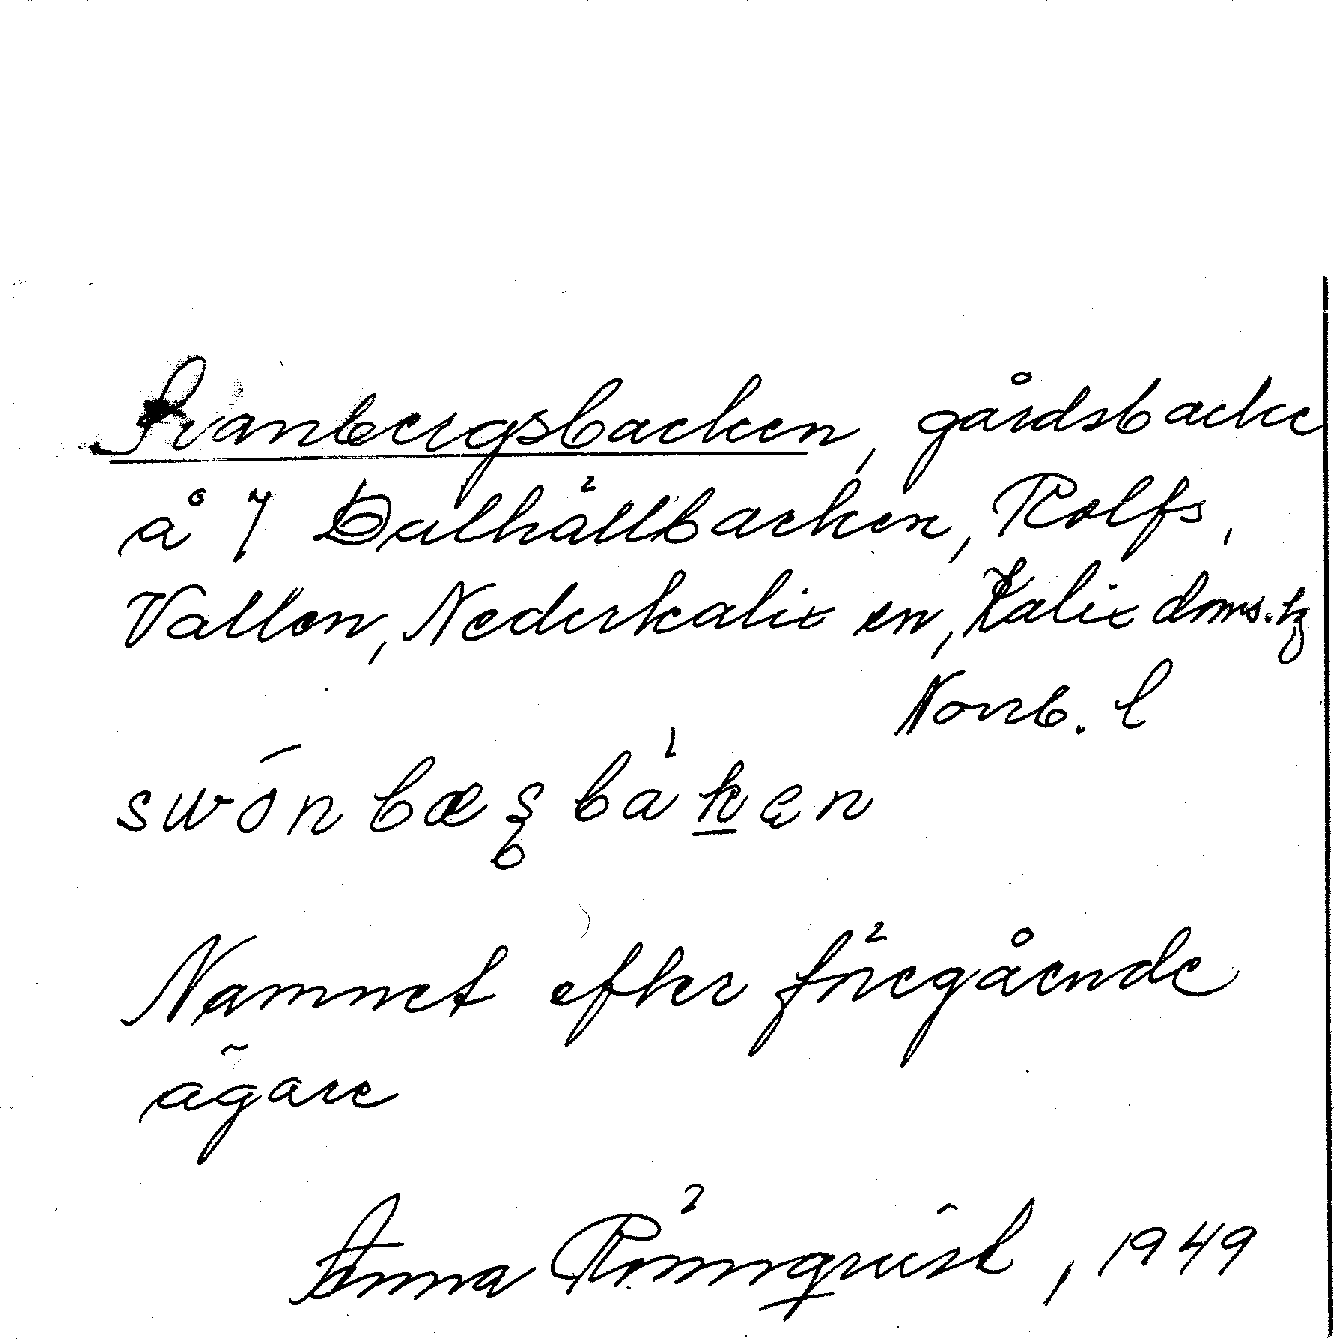 Svanbergsbacken, gårdsbacke
å 7 Dalhällbacken, Rolfs,
Vallen, Nederkalix sn, Kalix doms.tg
Norrb. l
swónbæȿbàkən
Namnet efter föregående
ägare
Anna Rönnquist, 1949